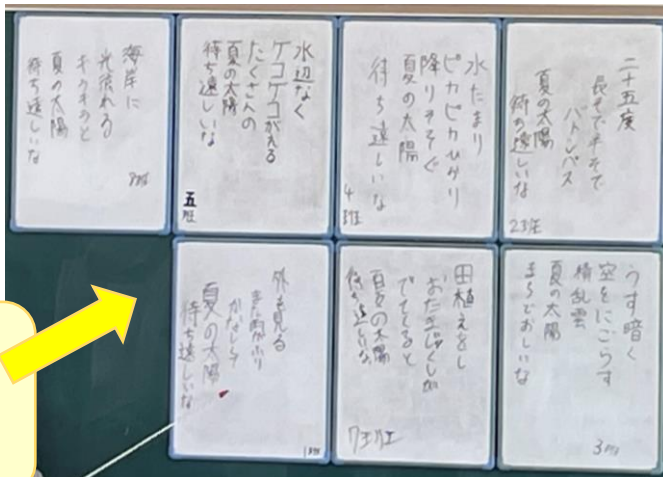 二十五度
長そで半そで
バトンパス
夏の太陽
待ち遠しいな
2班
水たまり
ピカピカひかり
降りそそぐ
夏の太陽
待ち遠しいな
4班
水辺なく
ケコケコがえる
たくさんの
夏の太陽
待ち遠しいな
五班
海岸に
光流れる
キラキラと
夏の太陽
待ち遠しいな
うす暗く
空をにごらす
積乱雲
夏の太陽
まちどおしいな
3班
田植えをし
おたまじゃくしが
でてくると
夏の太陽
待ち遠しいな
7班
外を見る
また雨がふり
かなしくて
夏の太陽
待ち遠しいな
1班